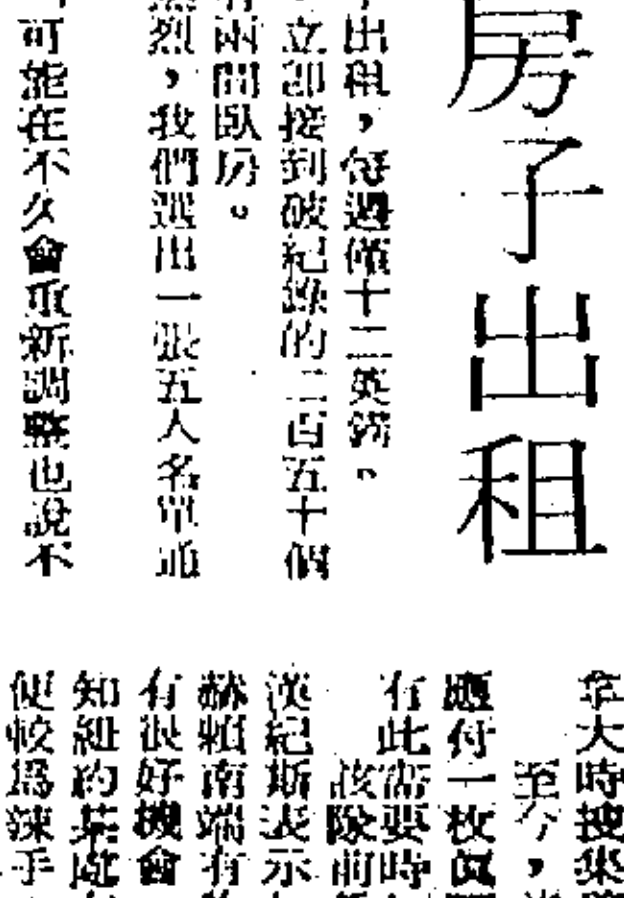 房子出租
出租，每週僅十二英鎊。
立卽接到破紀錄的二百五十個
兩間臥房。
烈，我們選出一張五人名單通
可能在不久會重新調整也說不
拿大時搜集
至今，
應付一枚眞
有此需要時
該隊前
漢紀斯表示
赫賴南端有
有很好機會
知紐約某處
便較爲辣手